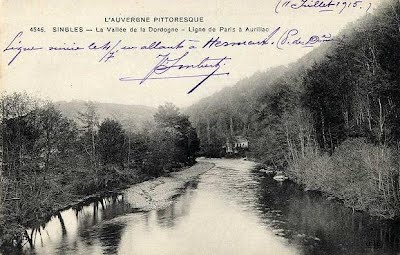 L'AUVERGNE PITTORESQUE
(11 Juillet 1915.)
4546. SINGLES — La Vallée de la Dordogne - Ligne de Paris à Aurillac
Ligne suivie les en allant à Herment (P.-de-Dôme)